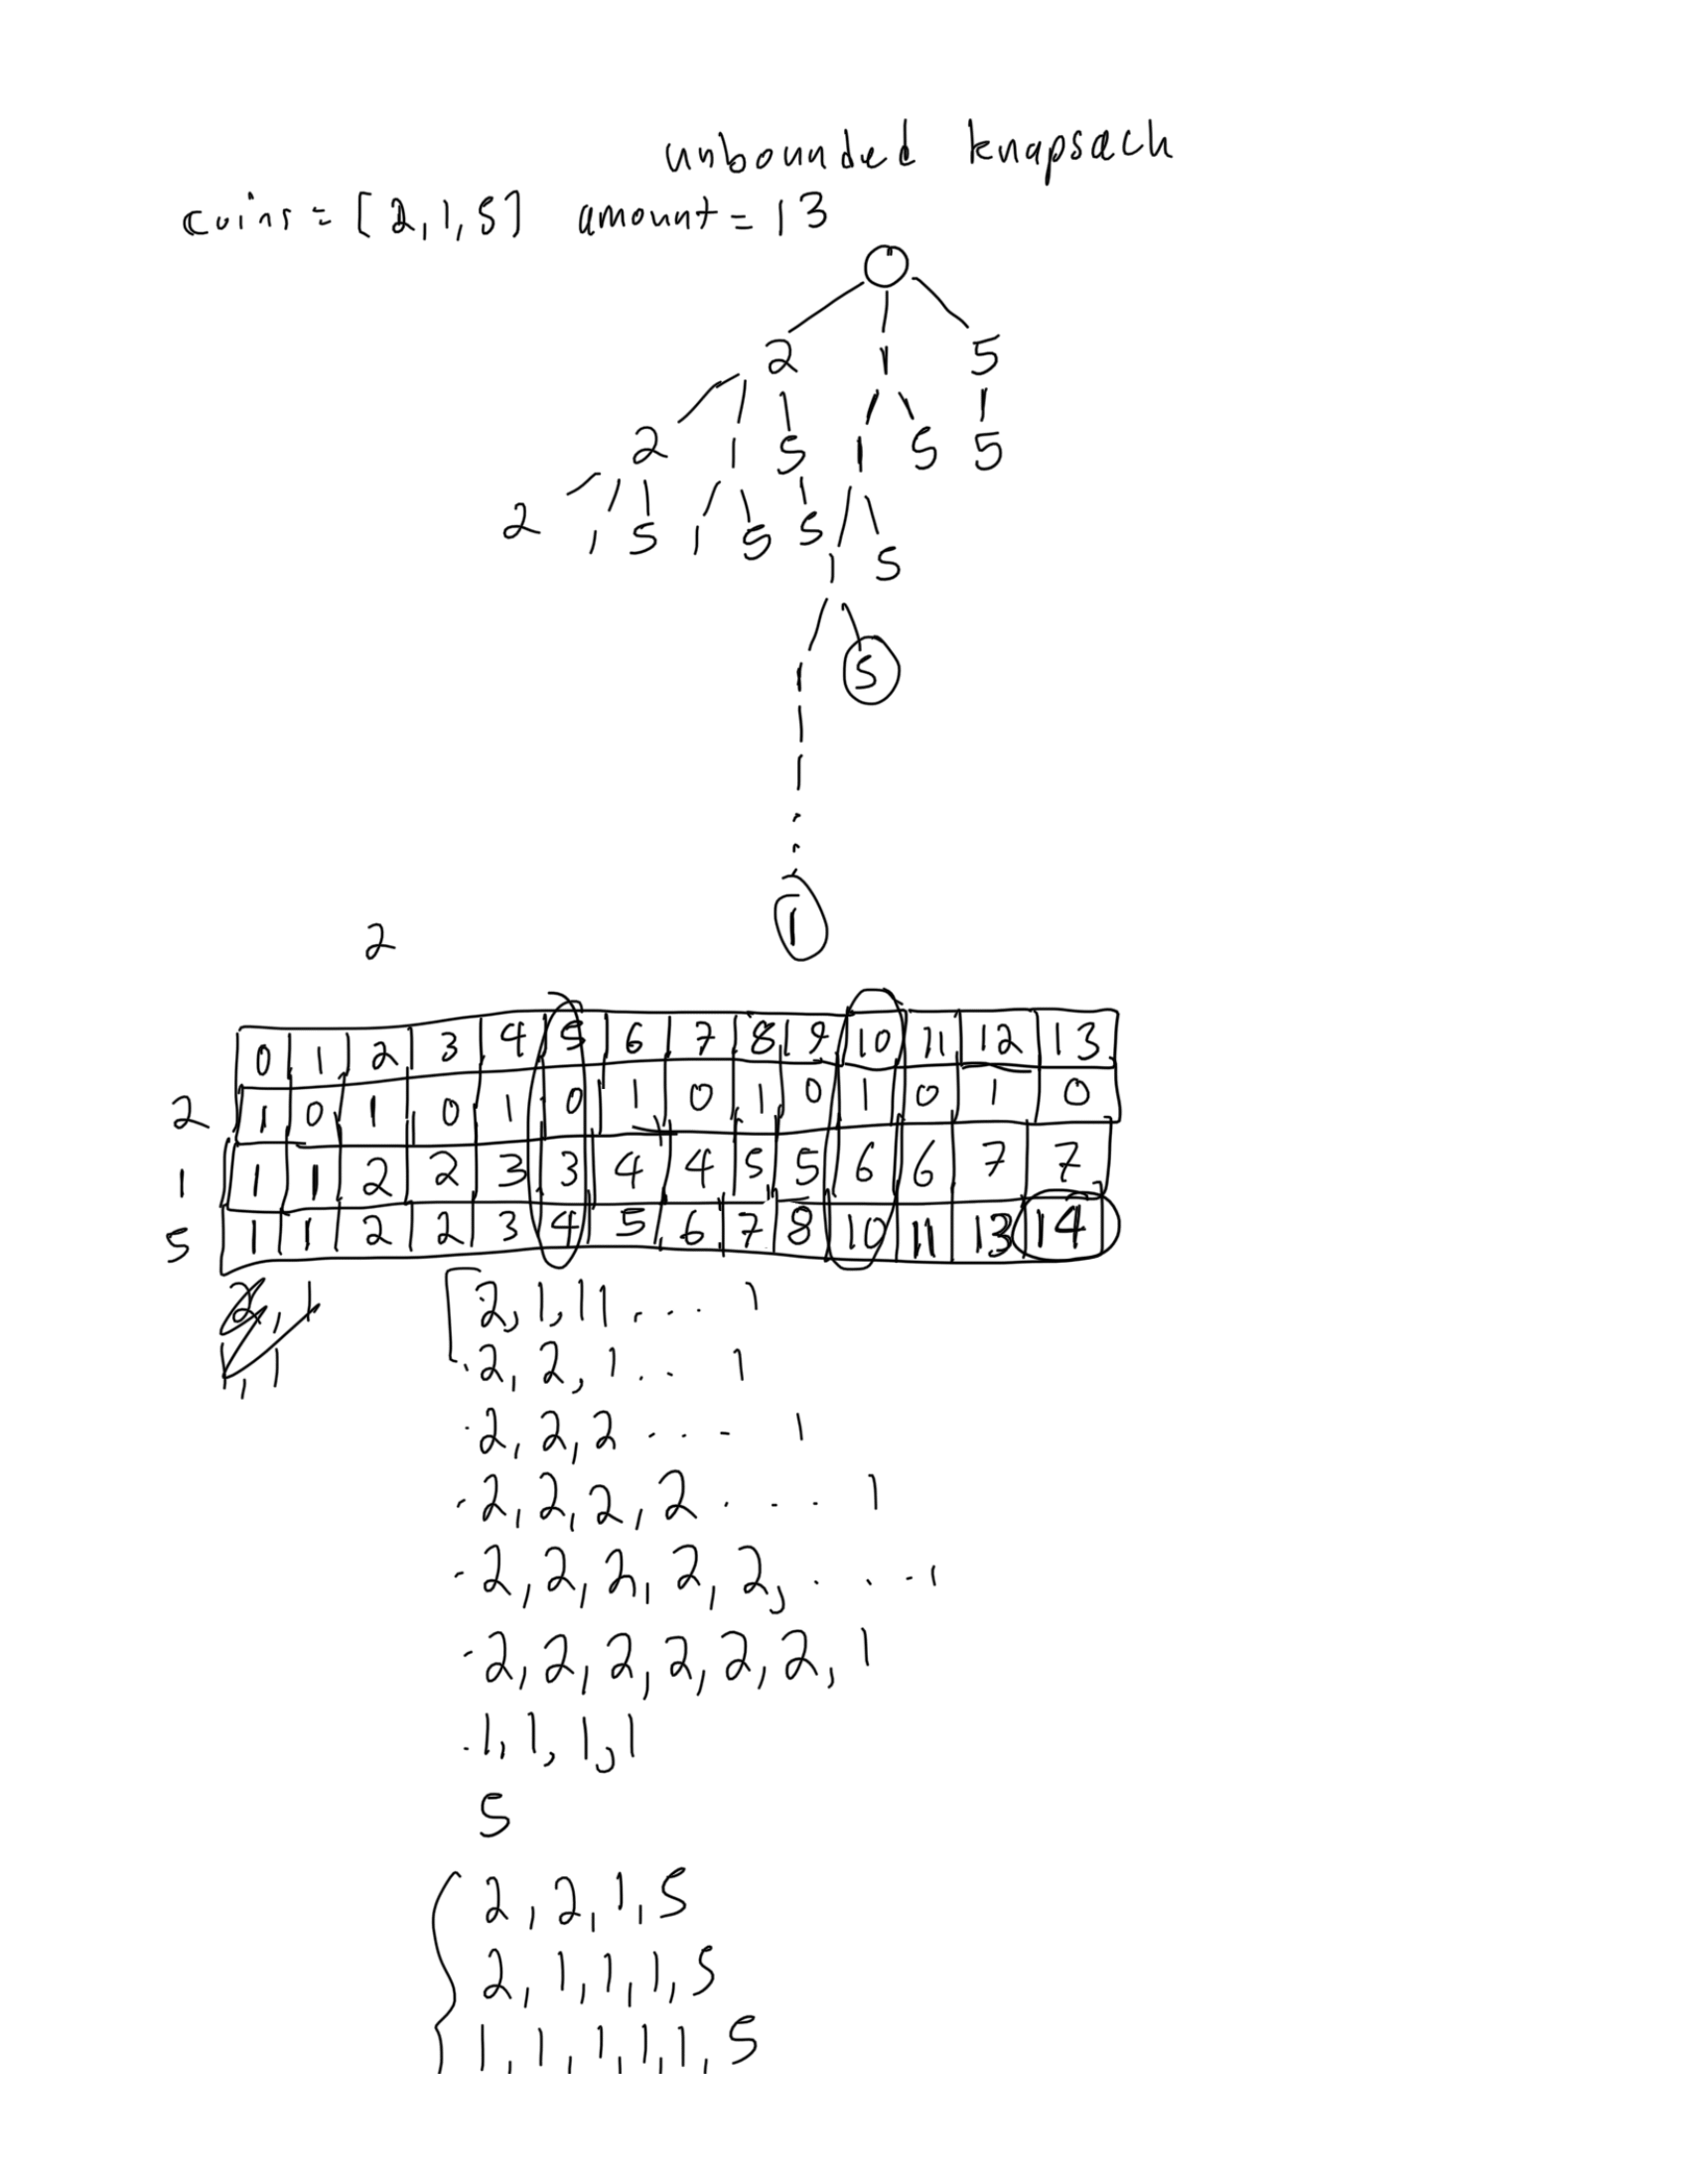 unbounded knapsach
coins = [2,1,5] amount = 13
0
2 1 5
2 1 5 1 5 5
2 1 5 1 5 5 1 5
1 5
1
2
1
0 1 2 3 4 5 6 7 8 9 10 11 12 13
2 1 0 1 0 1 0 1 0 1 0 1 0 1 0
1 1 1 2 2 3 3 4 4 5 5 6 6 7 7
5 1 1 2 2 3 4 5 6 7 8 10 11 13 14
2, 1 2, 1, 1 1, . . . 1
1, 1 2, 2, 1 . . 1
2, 2, 2 . . - 1
2, 2, 2, 2 . . . 1
2, 2, 2, 2, 2, . . . 1
2, 2, 2, 2, 2, 2, 1
1, 1, 1, 1
5
2, 2, 1, 5
2, 1, 1, 1, 5
1, 1, 1, 1, 1, 5